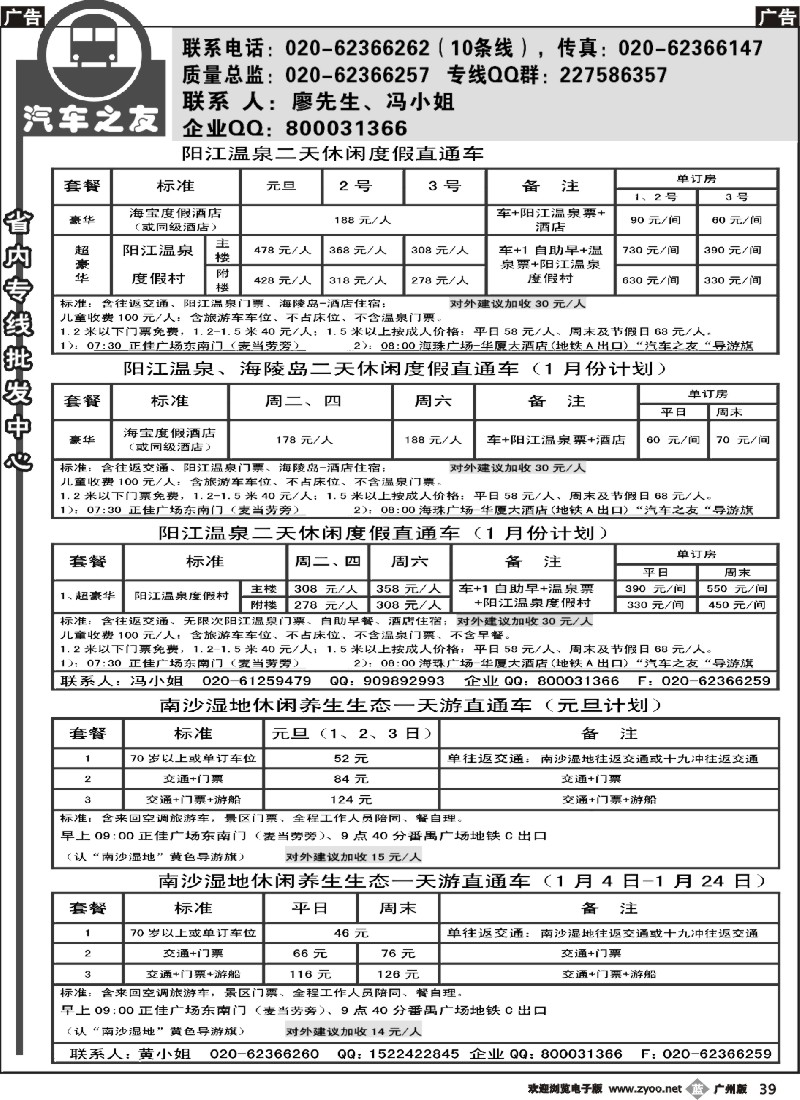 广告
广告
汽车之友
联系电话：020-62366262（10条线），传真：020-62366147
质量总监：020-62366257 专线QQ群：227586357
联系 人：廖先生、冯小姐
企业QQ：800031366
省内专线批发中心
阳江温泉二天休闲度假直通车
套餐 标准 元旦 2号 3号 备 注 单订房
1、2号 3号
豪华 海宝度假酒店（或同级酒店） 188元/人 车+阳江温泉票+酒店 90元/间 60元/间
超豪华 阳江温泉度假村 主楼 478元/人 368元/人 308元/人 车+1自助早+温泉票+阳江温泉度假村 730元/间 390元/间
附楼 428元/人 318元/人 278元/人 630元/间 330元/间
标准：含往返交通、阳江温泉门票、海陵岛-酒店住宿； 对外建议加收30元/人
儿童收费100元/人：含旅游车车位、不占床位、不含温泉门票。
1.2米以下门票免费，1.2-1.5米40元/人；1.5米以上按成人价格：平日58元/人、周末及节假日68元/人。
1）：07:30 正佳广场东南门（麦当劳旁） 2）：08:00海珠广场-华厦大酒店(地铁A出口)“汽车之友“导游旗
阳江温泉、海陵岛二天休闲度假直通车（1月份计划）
套餐 标准 周二、四 周六 备 注 单订房
平日 周末
豪华 海宝度假酒店（或同级酒店） 178元/人 188元/人 车+阳江温泉票+酒店 60元/间 70元/间
标准：含往返交通、阳江温泉门票、海陵岛-酒店住宿； 对外建议加收30元/人
儿童收费100元/人：含旅游车车位、不占床位、不含温泉门票。
1.2米以下门票免费，1.2-1.5米40元/人；1.5米以上按成人价格：平日58元/人、周末及节假日68元/人。
1）：07:30 正佳广场东南门（麦当劳旁） 2）：08:00海珠广场-华厦大酒店(地铁A出口)“汽车之友“导游旗
阳江温泉二天休闲度假直通车（1月份计划）
套餐 标准 周二、四 周六 备 注 单订房
平日 周末
1、超豪华 阳江温泉度假村 主楼 308元/人 358元/人 车+1自助早+温泉票+阳江温泉度假村 390元/间 550元/间
附楼 278元/人 308元/人 330元/间 450元/间
标准：含往返交通、无限次阳江温泉门票、自助早餐、酒店住宿；对外建议加收30元/人
儿童收费100元/人：含旅游车车位、不占床位、不含温泉门票、不含早餐。
1.2米以下门票免费，1.2-1.5米40元/人；1.5米以上按成人价格：平日58元/人、周末及节假日68元/人。
1）：07:30 正佳广场东南门（麦当劳旁） 2）：08:00海珠广场-华厦大酒店(地铁A出口)“汽车之友“导游旗
联系人：冯小姐 020-61259479 QQ：909892993 企业QQ：800031366 F：020-62366259
南沙湿地休闲养生生态一天游直通车（元旦计划）
套餐 标准 元旦（1、2、3日） 备 注
1 70岁以上或单订车位 52元 单往返交通：南沙湿地往返交通或十九冲往返交通
2 交通+门票 84元 交通+门票
3 交通+门票+游船 124元 交通+门票+游船
标准：含来回空调旅游车，景区门票、全程工作人员陪同、餐自理。
早上09:00正佳广场东南门（麦当劳旁）、9点40分番禺广场地铁C出口
（认“南沙湿地”黄色导游旗） 对外建议加收15元/人
南沙湿地休闲养生生态一天游直通车（1月4日-1月24日）
套餐 标准 平日 周末 备 注
1 70岁以上或单订车位 46元 单往返交通：南沙湿地往返交通或十九冲往返交通
2 交通+门票 66元 76元 交通+门票
3 交通+门票+游船 116元 126元 交通+门票+游船
标准：含来回空调旅游车，景区门票、全程工作人员陪同、餐自理。
早上09:00正佳广场东南门（麦当劳旁）、9点40分番禺广场地铁C出口
（认“南沙湿地”黄色导游旗） 对外建议加收14元/人
联系人：黄小姐 020-62366260 QQ：1522422845 企业QQ：800031366 F：020-62366259
欢迎浏览电子版 www.zyoo.net 蓝 广州版 39